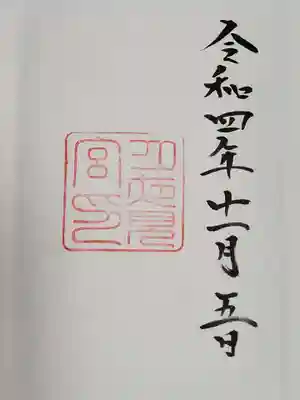 令和四年十一月五日
宮印